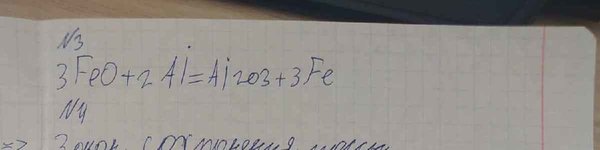 №3
3FeO+2Al=Al2O3+3Fe
№4
=> Закон сохранения массы